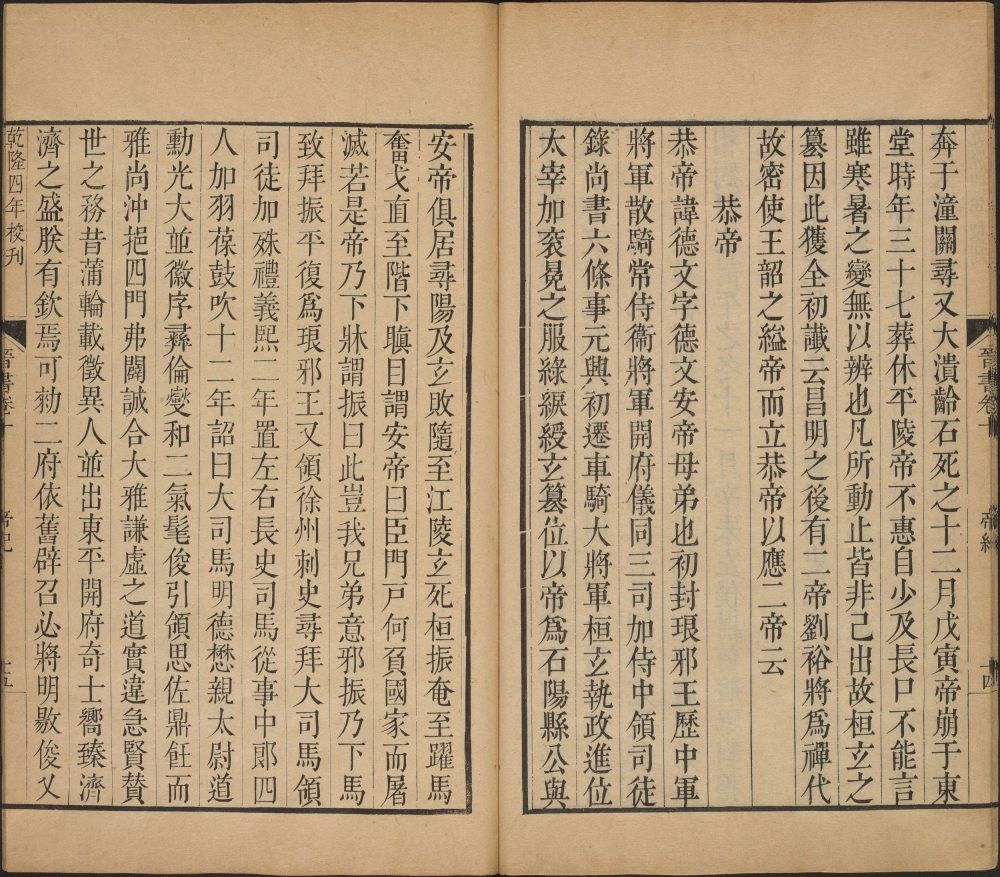 奔于潼關尋又大潰齡石死之十二月戊寅帝崩于東
堂時年三十七葬休平陵帝不惠自少及長口不能言
雖寒暑之變無以辨也凡所動止皆非己出故桓玄之
篡因此獲全初讖云昌明之後有二帝劉裕將爲禪代
故密使王韶之縊帝而立恭帝以應二帝云
恭帝
恭帝諱德文字德文安帝母弟也初封琅邪王歷中軍
將軍散騎常侍衞將軍開府儀同三司加侍中領司徒
錄尚書六條事元興初遷車騎大將軍桓玄執政進位
太宰加衮冕之服綠綟綬玄篡位以帝爲石陽縣公與
安帝俱居尋陽及玄敗隨至江陵玄死桓振奄至躍馬
奮戈直至階下瞋目謂安帝曰臣門戸何負國家而屠
滅若是帝乃下牀謂振曰此豈我兄弟意邪振乃下馬
致拜振平復爲琅邪王又領徐州刺史尋拜大司馬領
司徒加殊禮義熙二年置左右長史司馬從事中郎四
人加羽葆鼓吹十二年詔曰大司馬明德懋親太尉道
勳光大並徽序彝倫燮和二氣髦俊引領思佐鼎飪而
雅尚沖挹四門弗闢誠合大雅謙虛之道實違急賢贊
世之務昔蒲輪載徵異人並出東平開府奇士嚮臻濟
濟之盛朕有欽焉可勑二府依舊辟召必將明敭俊乂
乾隆四年校刊
晉書卷十
帝紀
十五